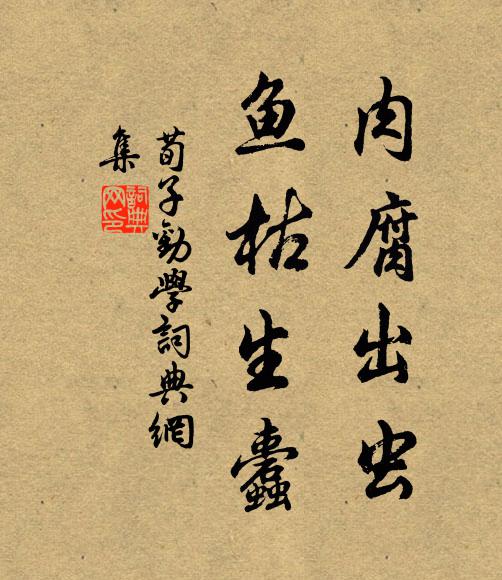 肉腐出虫
鱼枯生蠹
荀子劝學詞典網
集
詞典
网印